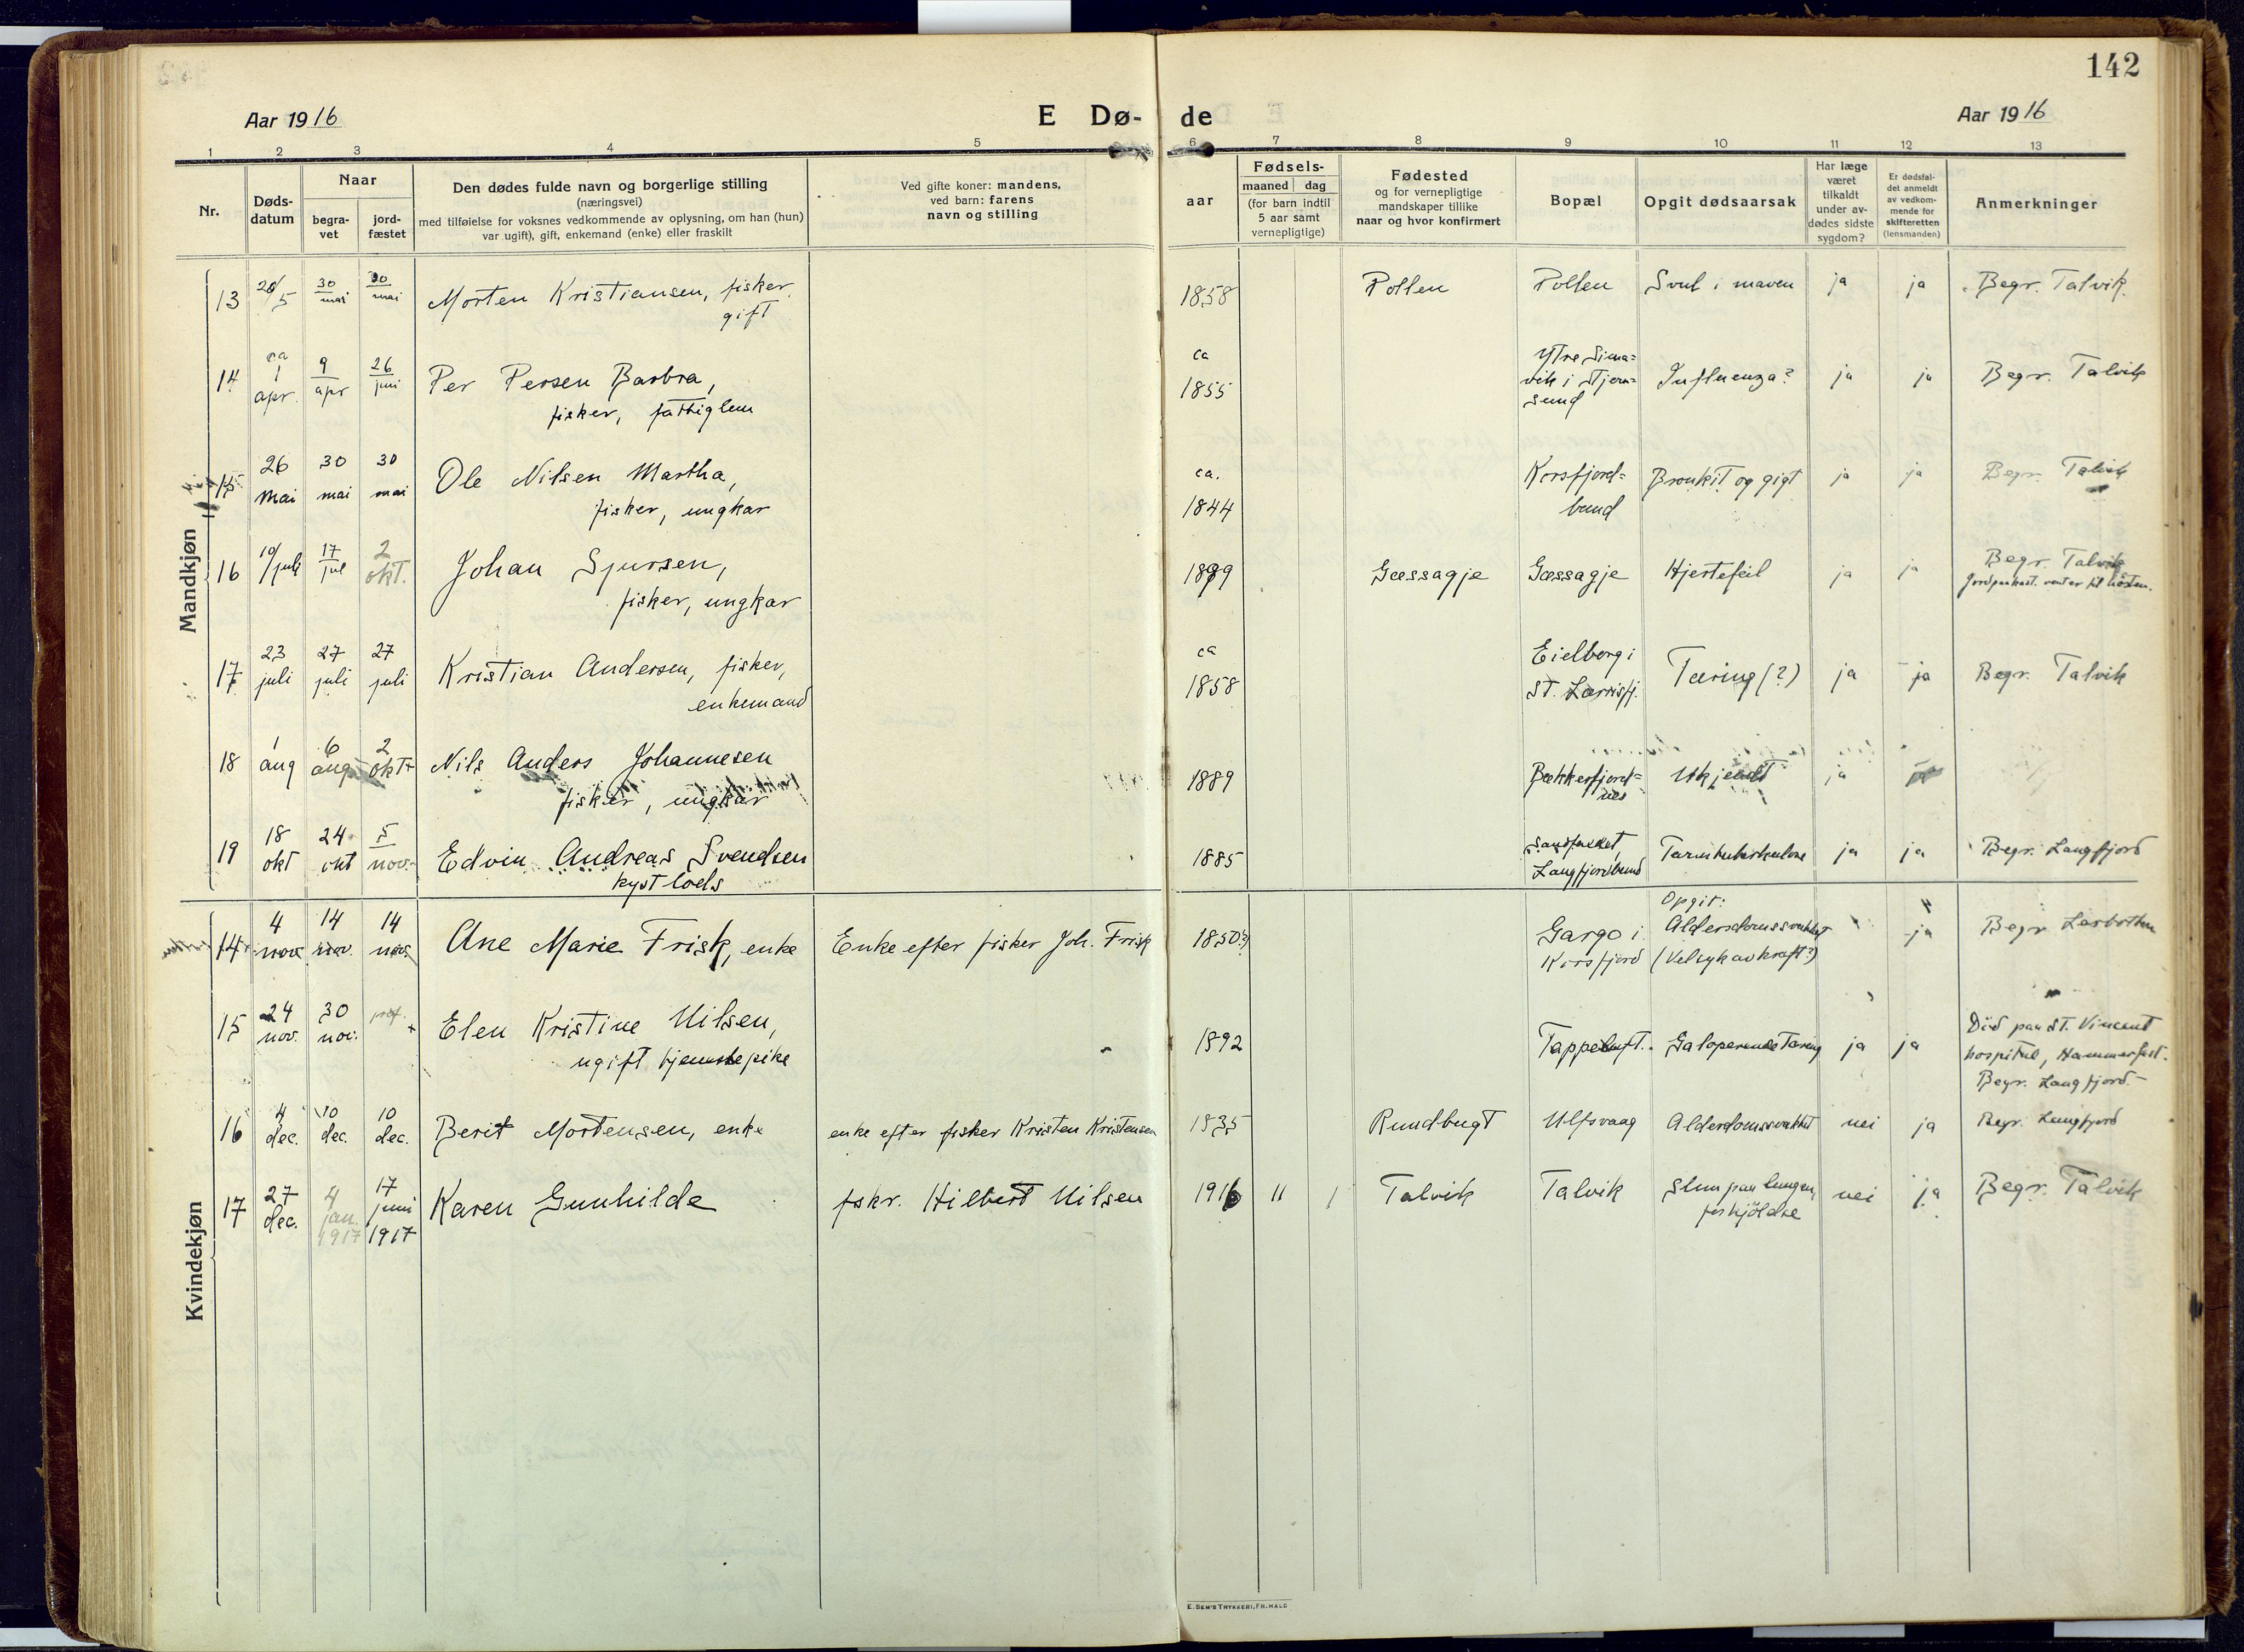 142
Aar 1916
E Dø-
de
Aar 1916
1 2 3 4 5 6 7 8 9 10 11 12 13
Nr.
Døds-
datum
Naar
begra-
vet
jord-
fæstet
Den dødes fulde navn og borgerlige stilling
(næringsvei)
med tilføielse for voksnes vedkommende av oplysning, om han (hun)
var ugift), gift, enkemand (enke) eller fraskilt
Ved gifte koner: mandens,
ved barn: farens
navn og stilling
aar
Fødsels-
maaned dag
(for barn indtil
5 aar samt
vernepligtige)
Fødested
og for vernepligtige
mandskaper tillike
naar og hvor konfirmert
Bopæl
Opgit dødsaarsak
Har læge
været
tilkaldt
under av-
dødes sidste
sygdom?
Er dødsfal-
det anmeldt
av vedkom-
mende for
skifteretten
(lensmanden)
Anmerkninger
Mandkjøn
13 /5 30 mai 30 mai Morten Kristiansen, fisker, 1858 Pollen Pollen Svul i maven ja ja Begr. Talvik.
gift
14 ca 1 apr. 9 apr 26 juni Per Persen Barbra, ca 1855 Ytre Sima=
vik i Stjern=
sund Influenza? ja ja Begr. Talvik
fisker, fattiglem
15 26 mai 30 mai 30 mai Ole Nilsen Martha, ca. 1844 Korsfjord=
bund Bronkit og gigt ja ja Begr. Talvik
fisker, ungkar
16 10/juli 17 jul 2 okt. Johan Sjursen, 1899 Gæssagje Gæssagje Hjertefeil ja ja Begr. Talvik
fisker, ungkar venter til høsten.
17 23 juli 27 juli 27 juli Kristian Andersen, fisker, ca 1858 Eielberg i
St. Lerrisfj. Tæring (?) ja ja Begr. Talvik
enkemand
18 1 aug 6 aug 2 okt Nils Anders Johannesen 1889 Bekkerfjord=
nes Ukjendt ja
fisker, ungkar
19 18 okt 24 okt 5 nov. Edvin Andreas Svendsen 1885 Langfjordbund Tarmtuberkulose ja ja Begr. Langfjord
kystlods
Kvindekjøn
14 4 nov. 14 nov. 14 nov. Ane Marie Frisk, enke Enke efter fisker Joh. Frisk 1850?) Gargo i
Korsfjord Opgit:
Alderdomssvakhet
(Velsyk av kraft?) ja Begr.
15 24 nov. 30 nov. Elen Kristine Nilsen, 1892 Tappeluft. Galoperende Tæring ja ja Død paa St. Vincent
hospital, Hammerfest.
Begr. Langfjord.
ugift tjenstepike
16 4 dec. 10 dec. 10 dec. Berit Mortensen, enke enke efter fisker Kristen Kristensen 1835 Rundbugt Ulfsvaag Alderdomssvakhet nei ja Begr. Langfjord
17 27 dec. 4 jan. 1917 17 juni 1917 Karen Gunhilde fskr. Hilbert Nilsen 1916 11 1 Talvik Talvik Slim paa lungen,
forkjölelse nei ja Begr. Talvik
E. SEM'S TRYKKERI, FR.HALD